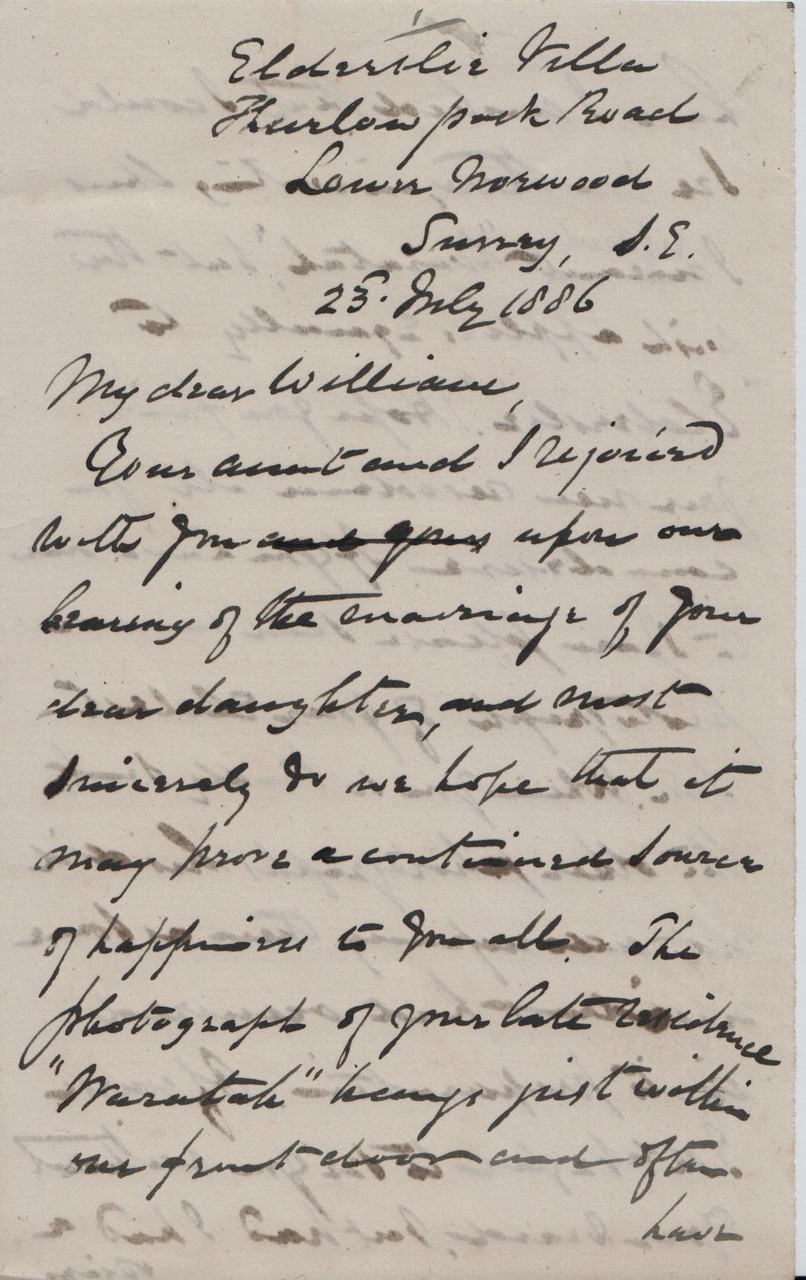 Elderslie Villa
Thurlow park Road
Lower Norwood
Surrey, S.E.
23rd July 1886
My dear William,
Your aunt and I rejoiced
with you and yours upon our
hearing of the marriage of your
dear daughter, and most
sincerely do we hope that it
may prove a continued source
of happiness to you all. The
photograph of your late residence
"Waratah" hangs just within
our front door and often
have